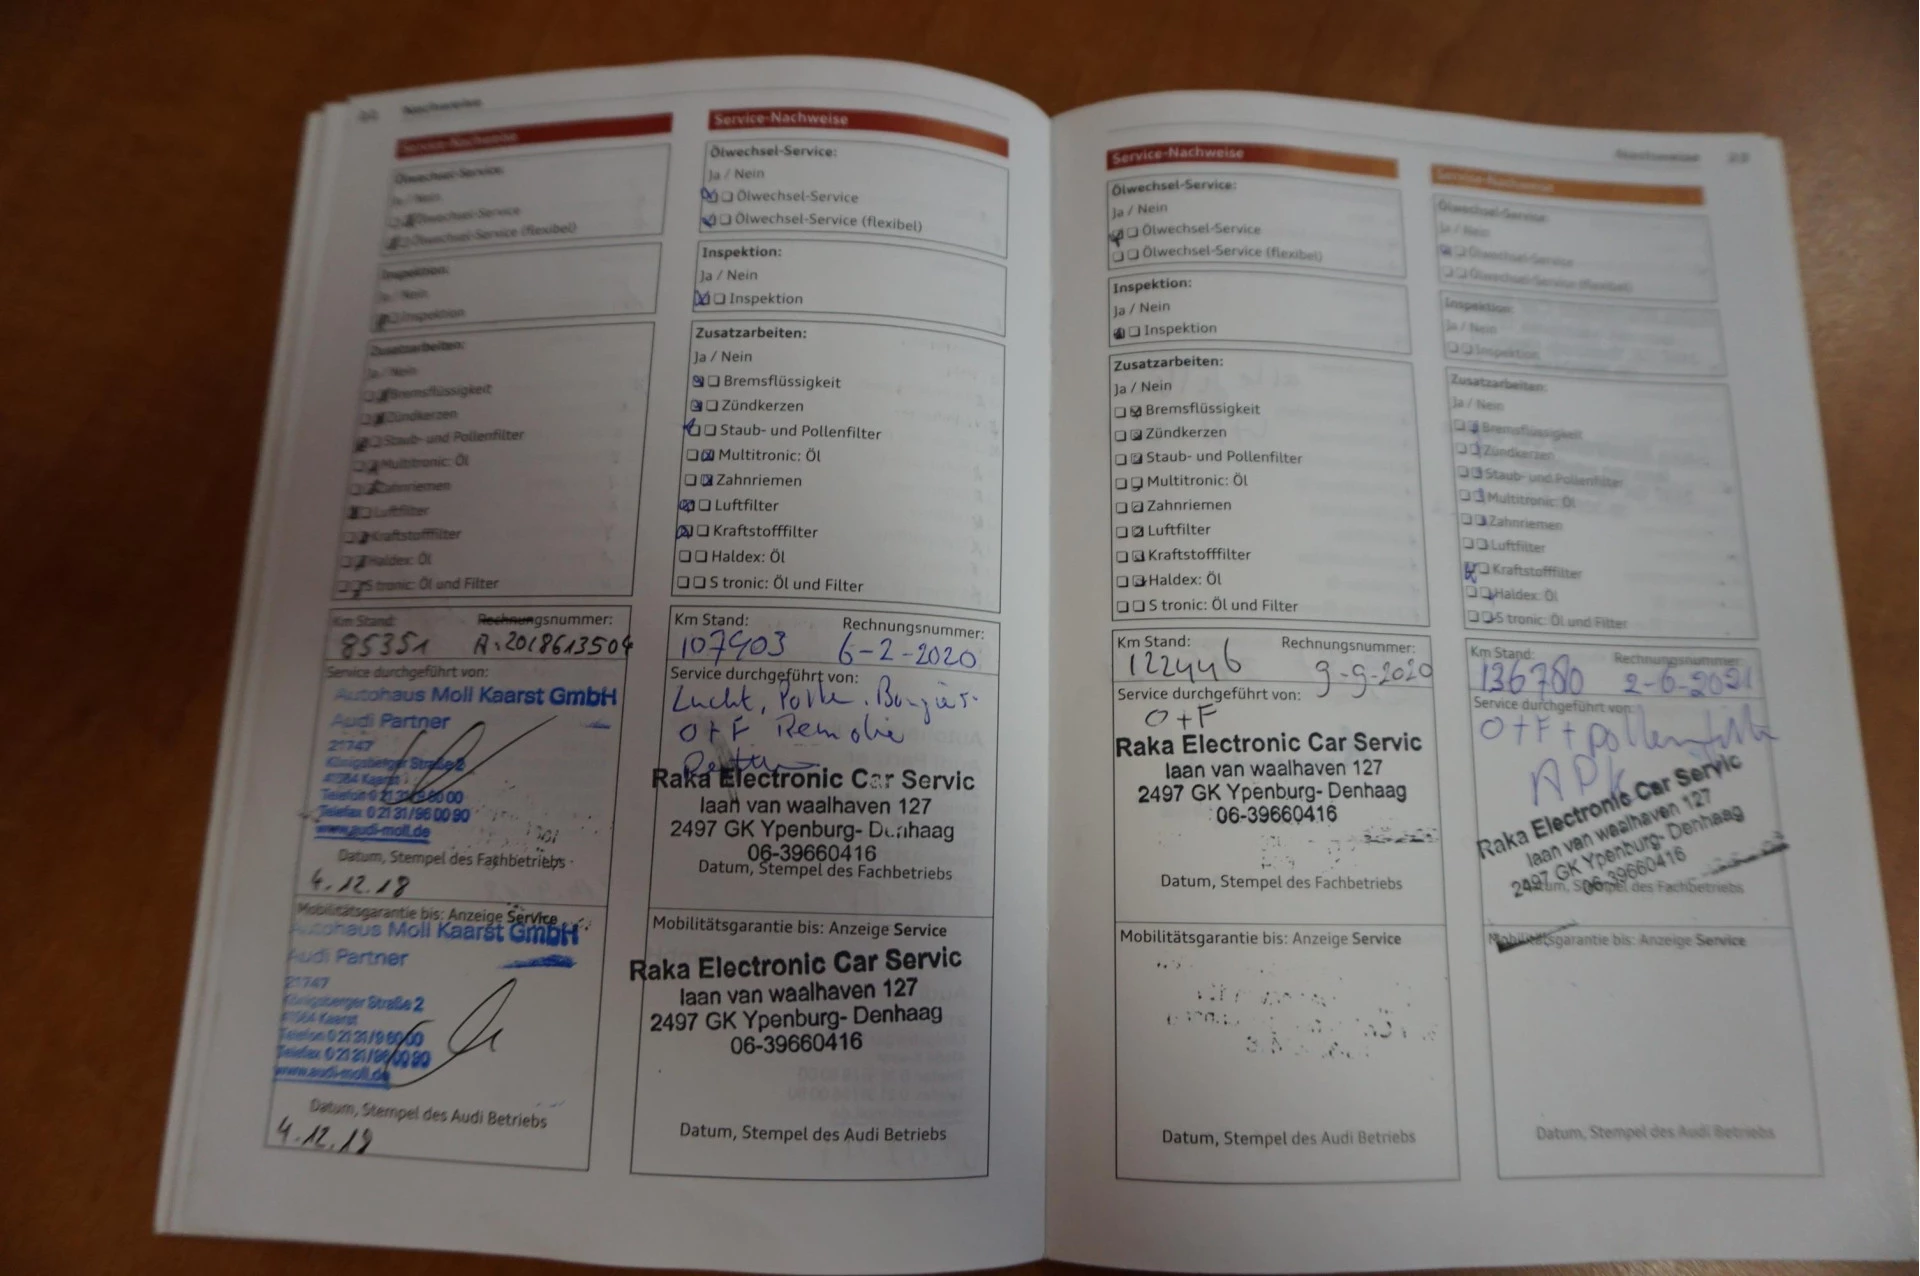 Nachweise
Service-Nachweise
Ölwechsel-Service:
Ja / Nein
Ölwechsel-Service
Ölwechsel-Service (flexibel)
Inspektion:
Ja / Nein
Inspektion
Zusatzarbeiten:
Ja / Nein
Bremsflüssigkeit
Zündkerzen
Staub- und Pollenfilter
Multitronic: Öl
Zahnriemen
Luftfilter
Kraftstofffilter
Haldex: Öl
S tronic: Öl und Filter
Km Stand: Rechnungsnummer:
85351 A.2018613504
Service durchgeführt von:
Autohaus Moll Kaarst GmbH
Audi Partner
21747
Königsberger Straße 2
41564 Kaarst
Telefon 0 21 31/9 60 00
Telefax 0 21 31/96 00 90
www.audi-moll.de
Datum, Stempel des Fachbetriebs
4.12.18
Mobilitätsgarantie bis: Anzeige Service
Autohaus Moll Kaarst GmbH
Audi Partner
21747
Königsberger Straße 2
41564 Kaarst
Telefon 0 21 31/9 60 00
Telefax 0 21 31/96 00 90
www.audi-moll.de
Datum, Stempel des Audi Betriebs
4.12.18
Service-Nachweise
Ölwechsel-Service:
Ja / Nein
Ölwechsel-Service
Ölwechsel-Service (flexibel)
Inspektion:
Ja / Nein
Inspektion
Zusatzarbeiten:
Ja / Nein
Bremsflüssigkeit
Zündkerzen
Staub- und Pollenfilter
Multitronic: Öl
Zahnriemen
Luftfilter
Kraftstofffilter
Haldex: Öl
S tronic: Öl und Filter
Km Stand: Rechnungsnummer:
107403 6-2-2020
Service durchgeführt von:
Lucht,
O+F
Raka Electronic Car Servic
laan van waalhaven 127
2497 GK Ypenburg- Denhaag
06-39660416
Datum, Stempel des Fachbetriebs
Mobilitätsgarantie bis: Anzeige Service
Raka Electronic Car Servic
laan van waalhaven 127
2497 GK Ypenburg- Denhaag
06-39660416
Datum, Stempel des Audi Betriebs
Service-Nachweise
Ölwechsel-Service:
Ja / Nein
Ölwechsel-Service
Ölwechsel-Service (flexibel)
Inspektion:
Ja / Nein
Inspektion
Zusatzarbeiten:
Ja / Nein
Bremsflüssigkeit
Zündkerzen
Staub- und Pollenfilter
Multitronic: Öl
Zahnriemen
Luftfilter
Kraftstofffilter
Haldex: Öl
S tronic: Öl und Filter
Km Stand: Rechnungsnummer:
122446 9-9-2020
Service durchgeführt von:
O+F
Raka Electronic Car Servic
laan van waalhaven 127
2497 GK Ypenburg- Denhaag
06-39660416
Datum, Stempel des Fachbetriebs
Mobilitätsgarantie bis: Anzeige Service
Datum, Stempel des Audi Betriebs
Nachweise
Service-Nachweise
Ölwechsel-Service:
Ja / Nein
Ölwechsel-Service
Ölwechsel-Service (flexibel)
Inspektion:
Ja / Nein
Inspektion
Zusatzarbeiten:
Ja / Nein
Bremsflüssigkeit
Zündkerzen
Staub- und Pollenfilter
Multitronic: Öl
Zahnriemen
Luftfilter
Kraftstofffilter
Haldex: Öl
S tronic: Öl und Filter
Km Stand: Rechnungsnummer:
136780 2-6-2021
Service durchgeführt von:
O+F+pollenfilter
APK
Raka Electronic Car Servic
laan van waalhaven 127
2497 GK Ypenburg- Denhaag
06-39660416
Datum, Stempel des Fachbetriebs
Mobilitätsgarantie bis: Anzeige Service
Datum, Stempel des Audi Betriebs